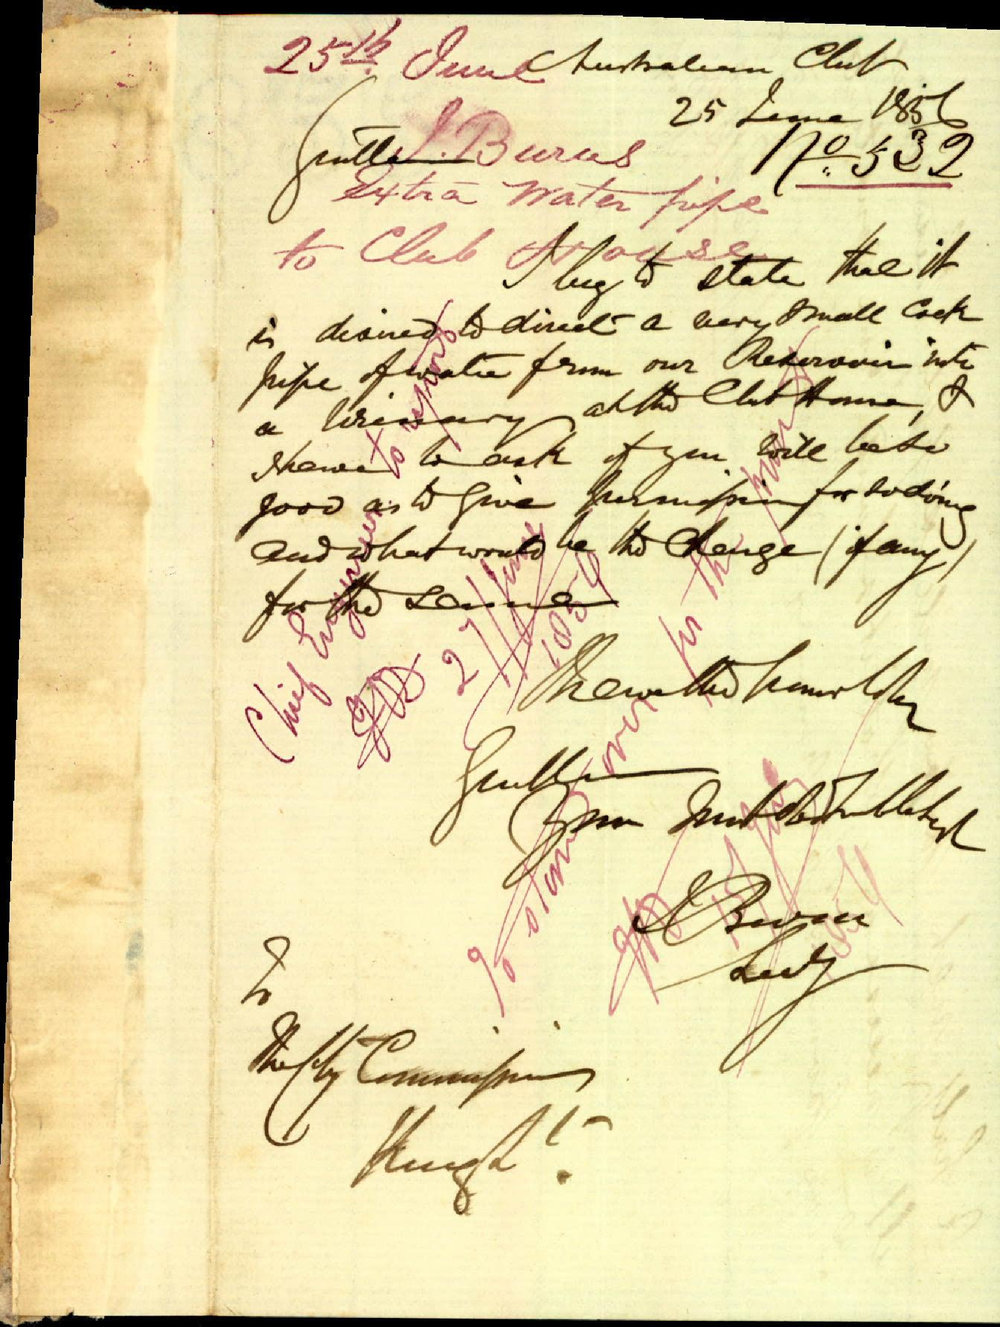 25th June
Australian Club
25 June 1856
No. 532
Gentlemen
J. Burns
extra Water pipe
to Club House
I beg to state that it
is desired to direct a very small Cock
pipe of water from our Reservoir into
a Urinary at the Club House, &
I have to ask if you will be so
good as to give permission for so doing
and what would be the Charge (if any)
for the same
Chief Engineer to report
27/June
1856
I have the honor to be
Gentlemen
Your Most Obedt
To stand over for the present
J Burns
Secty
To
The City Commissioners